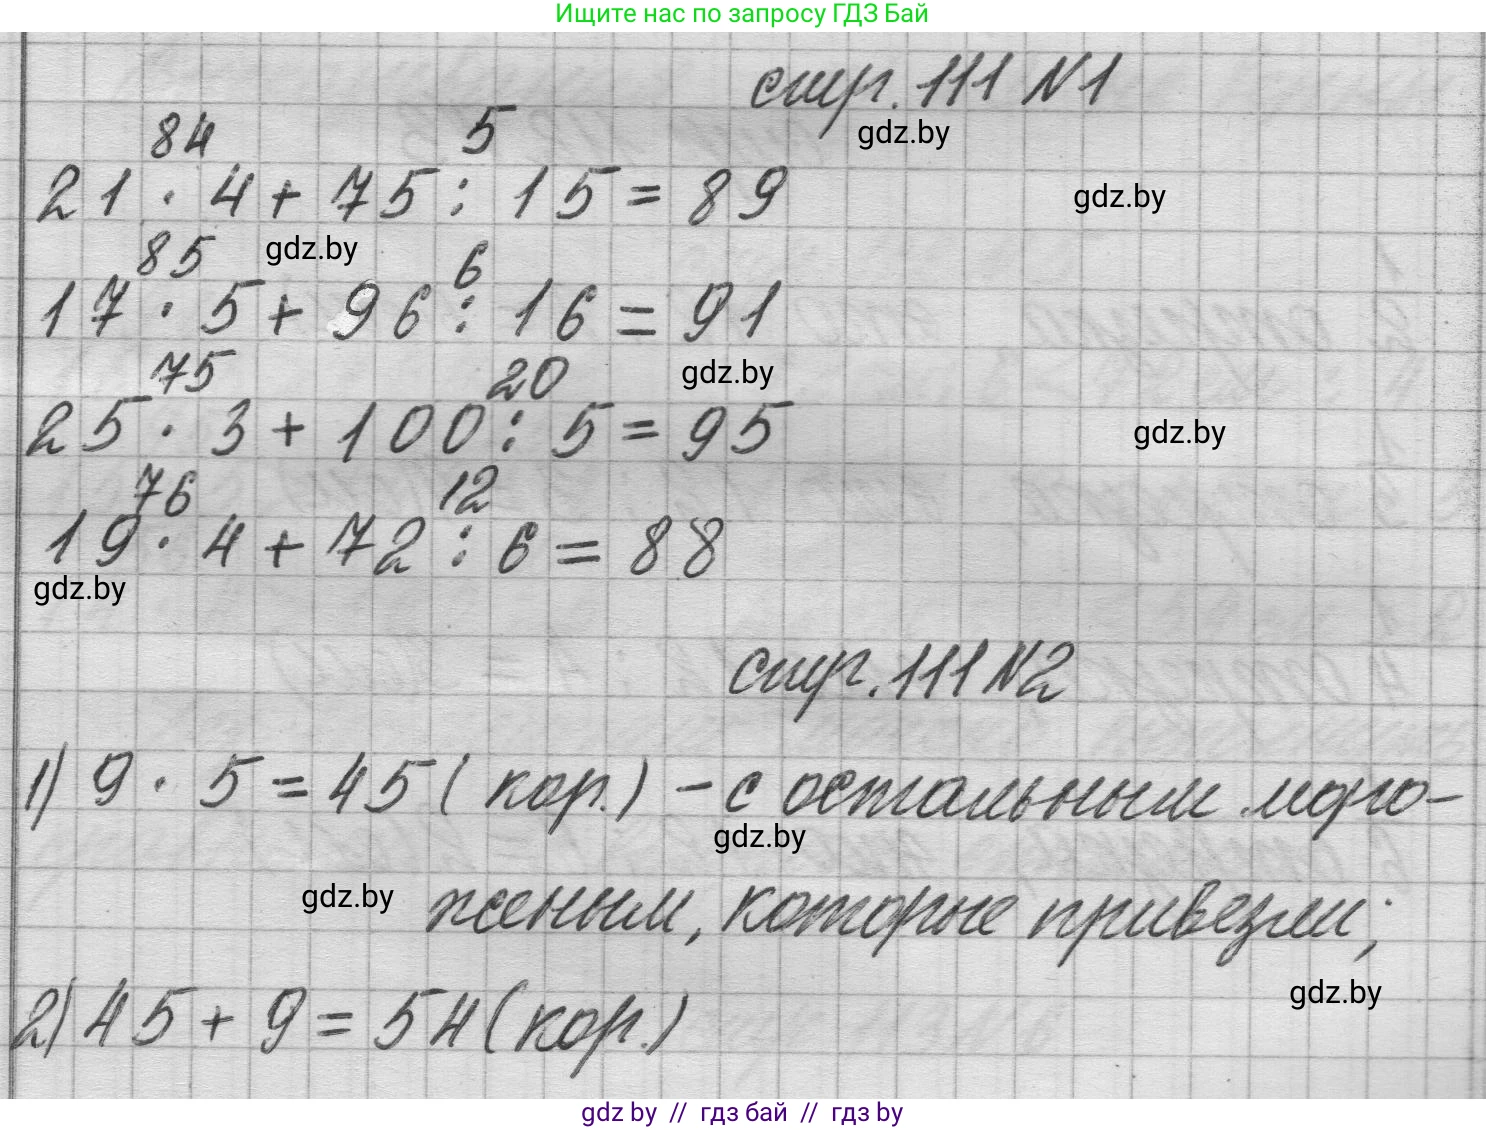 Ищите нас по запросу ГДЗ Бай
стр. 111 №1
gdz.by
84 5
21 · 4 + 75 : 15 = 89
gdz.by
85 gdz.by 6
17 · 5 + 96 : 16 = 91
75 20 gdz.by
25 · 3 + 100 : 5 = 95
gdz.by
76 12
19 · 4 + 72 : 6 = 88
gdz.by
стр. 111 №2
1) 9 · 5 = 45 (кор.) - с остальным моро-
gdz.by
gdz.by
женым, которые привезли;
gdz.by
2) 45 + 9 = 54 (кор.)
gdz by // гдз бай // гдз by